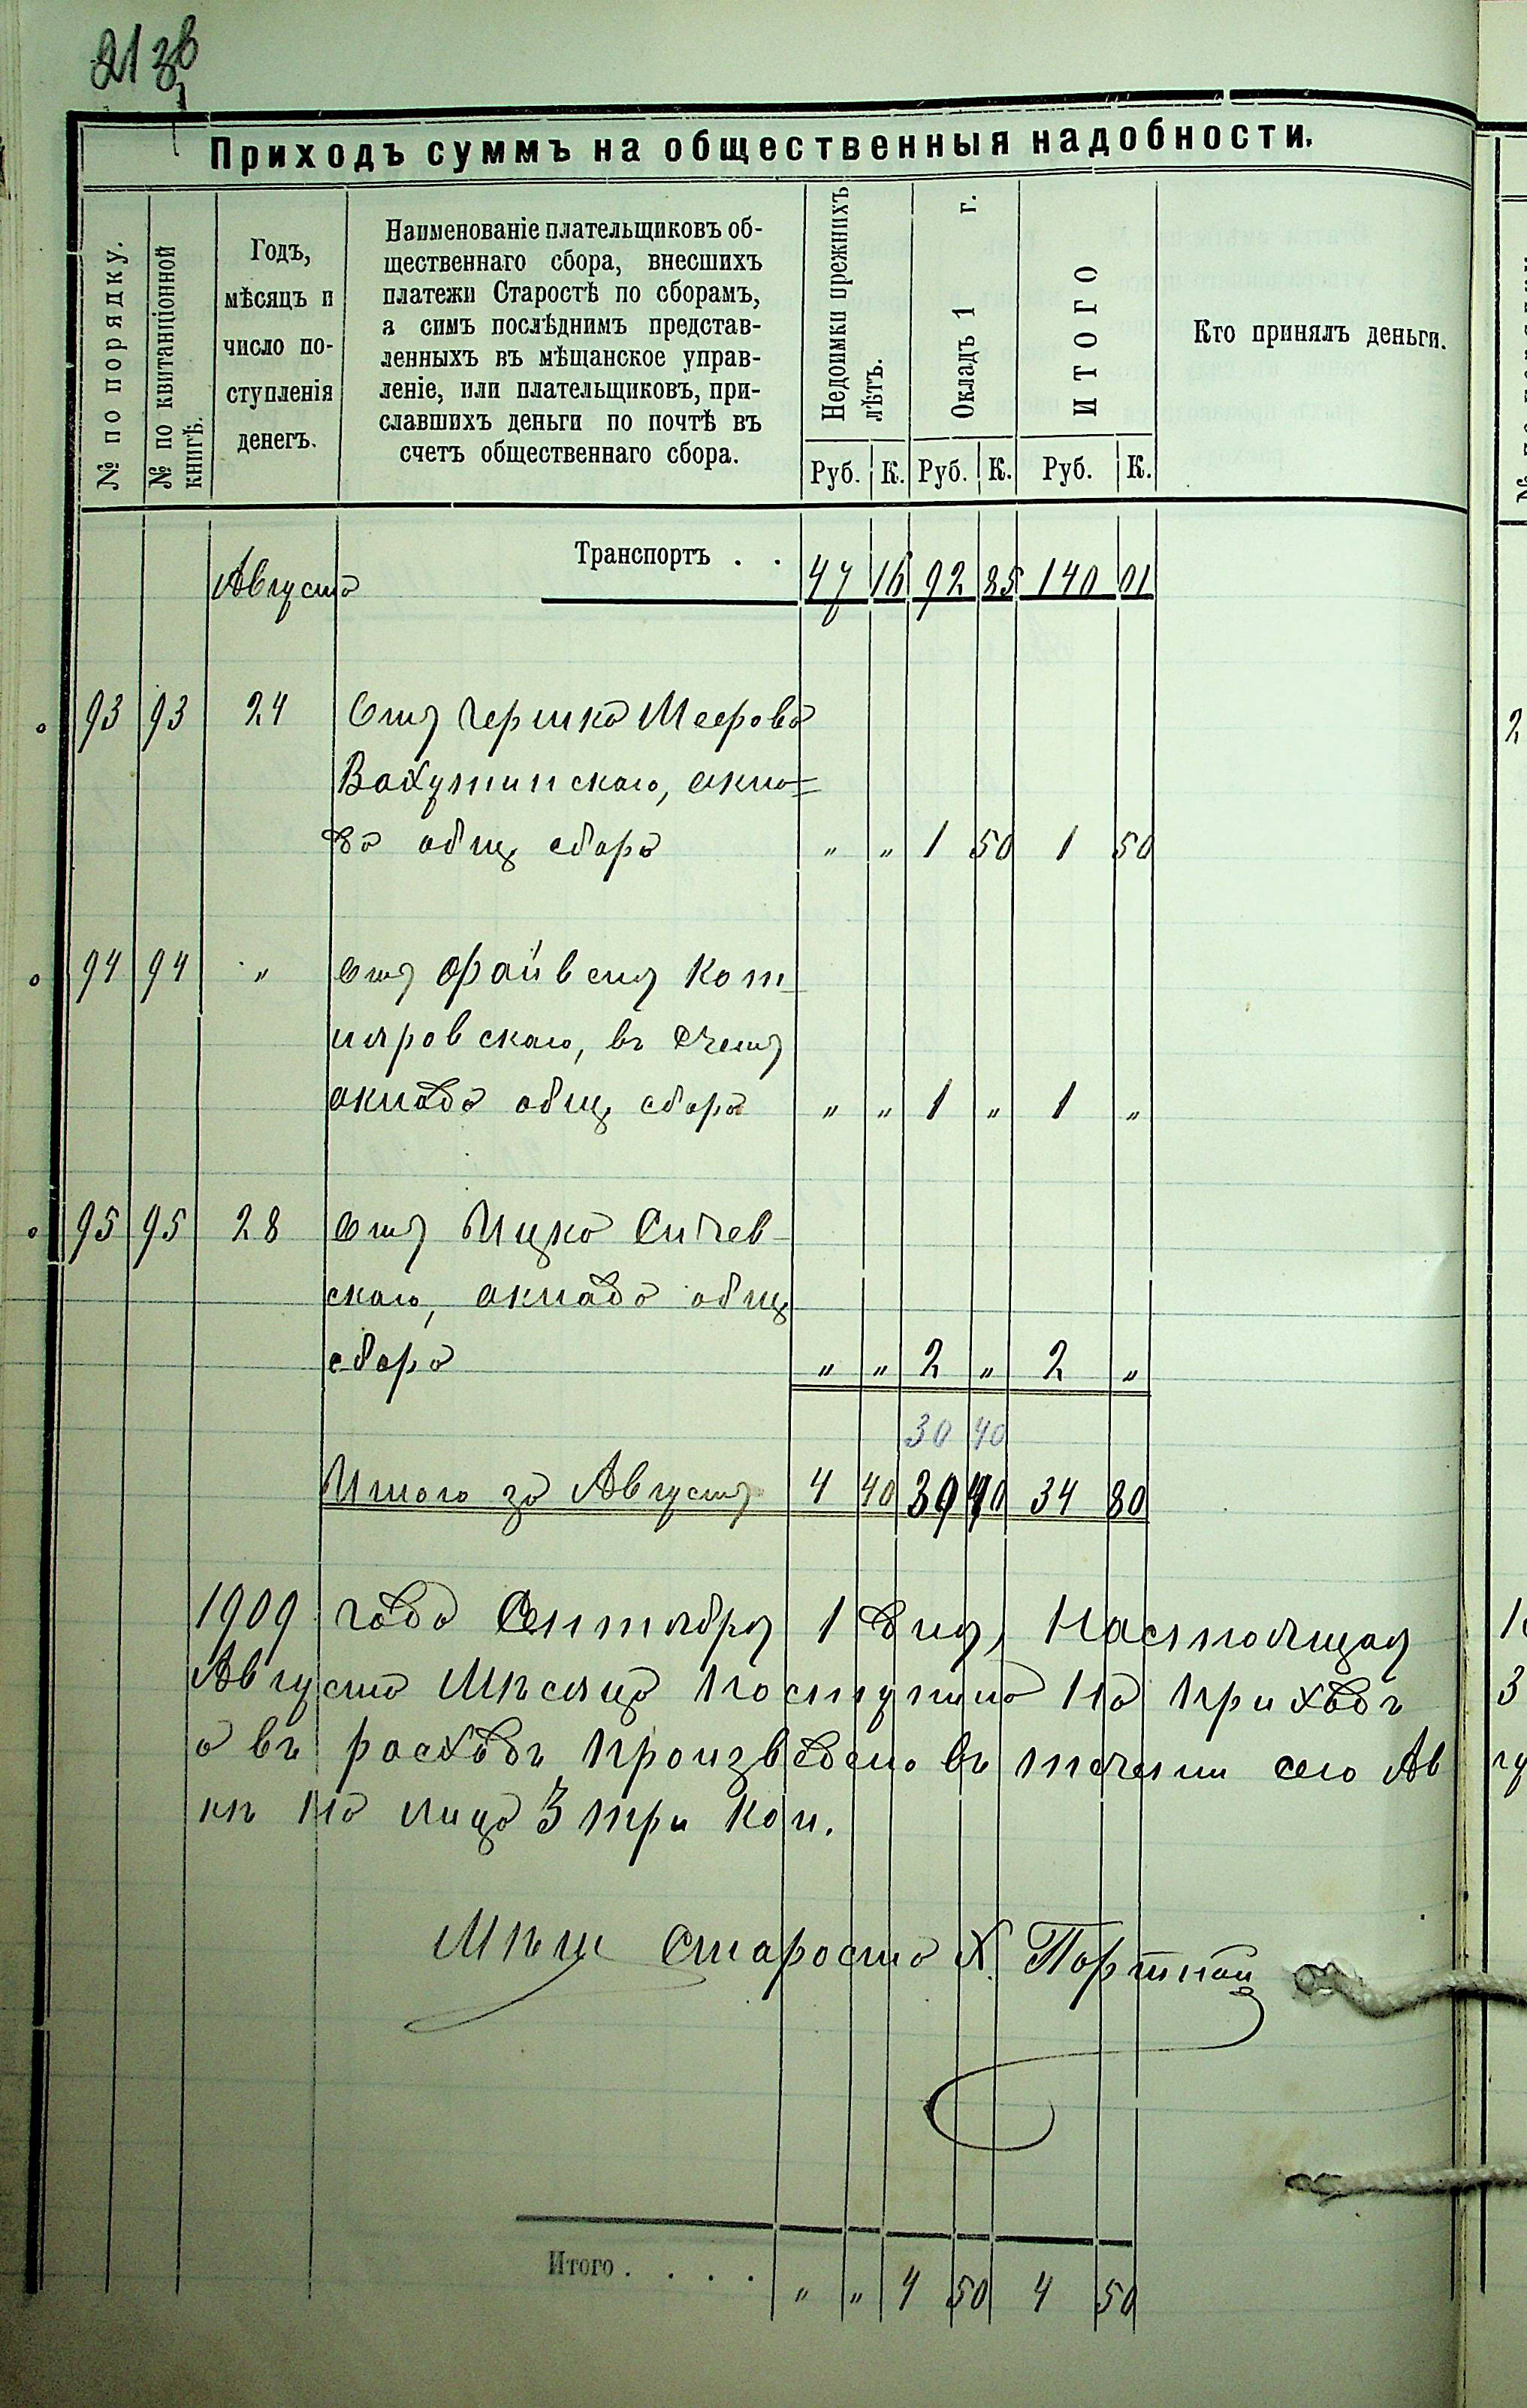 21 зв
Приходъ суммъ на общественныя надобности.
№ по порядку.
№ по квитанціонной книгѣ.
Годъ,
мѣсяцъ и
число по-
ступленія
денегъ.
Наименованіе плательщиковъ об-
щественнаго сбора, внесшихъ
платежи Старостѣ по сборамъ,
а симъ послѣднимъ представ-
ленныхъ въ мѣщанское управ-
леніе, или плательщиковъ, при-
славшихъ деньги по почтѣ въ
счетъ общественнаго сбора.
Недоимки прежнихъ лѣтъ.
Окладъ 1 г.
ИТОГО
Кто принялъ деньги.
Руб. К. Руб. К. Руб. К.
Транспортъ . .
Августа 47 16 92 85 140 01
93 93 24 Отъ Гершка Меерова
скаго, окла=
да общ сбора " " 1 50 1 50
94 94 " Отъ
скаго, въ счетъ
оклада общ сбора " " 1 " 1 "
95 95 28 Отъ Ицка Сичев-
скаго, оклада общ
сбора " " 2 " 2 "
30 40
Итого за Августъ 4 40 34 80
1909 года Сентября 1 дня, Настоящая
Августа Мѣсяца поступило на приходъ
а въ расходъ произведено въ течении сего Ав
къ на лицо 3 три коп.
Мѣщ Староста Х. Портной
Итого . . . . " " 4 50 4 50